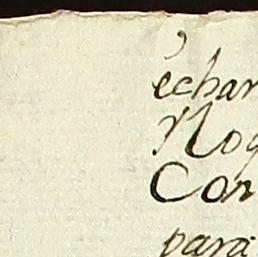 echar
Nog
Con
para